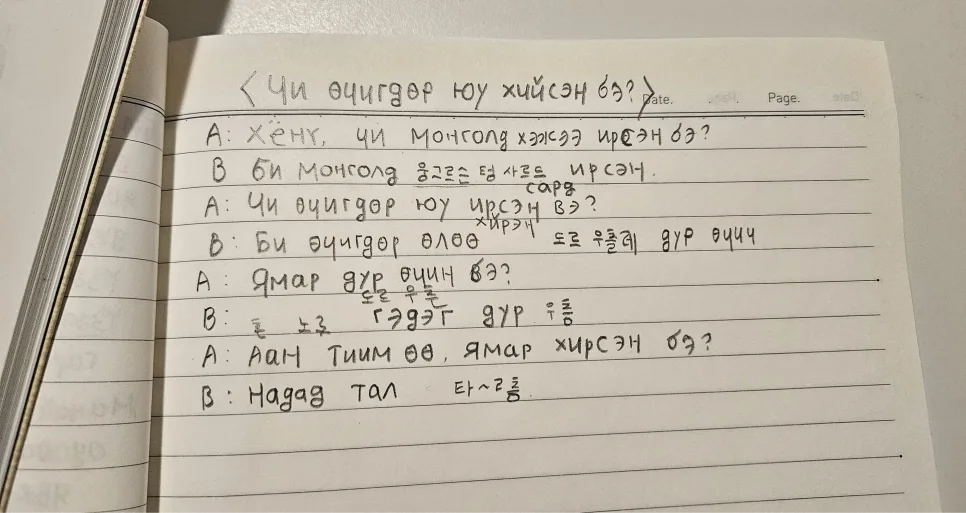 <Чи өчигдөр юу хийсэн бэ?>
Date. Page.
А: Хёнг, чи монголд хэжээ ирсэн бэ?
В Би монголд 웅그르는 텅 사르드 ирсэн.
сард
А: Чи өчигдөр юу ирсэн вэ?
хийрэн
В: Би өчигдөр өлөө 도로 우졸레 дур өчич
А: Ямар дур өчин вэ?
도로 우졸
В: 노르 гэдэг дур 우틈
А: Аан тиим өө, ямар хирсэн бэ?
В: Надад тал 타~르틈